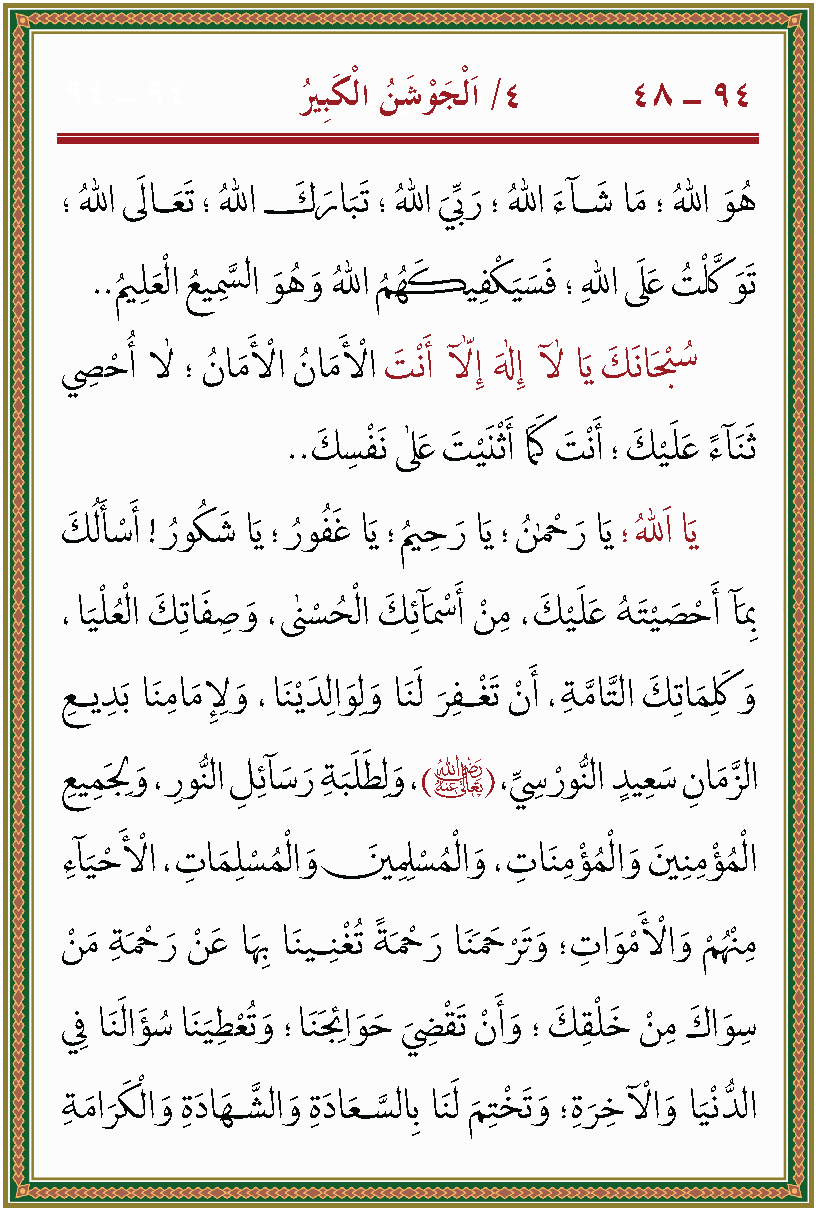 ٩٤ ـ ٤٨ ٤/ اَلْجَوْشَنُ الْكَبِيرُ ٩٤ ـ ٩٤
هُوَ اللهُ ؛ مَا شَـآءَ اللهُ ؛ رَبِّيَ اللهُ ؛ تَبَارَكَ اللهُ ؛ تَعَـالَى اللهُ ؛
تَوَكَّلْتُ عَلَى اللهِ ؛ فَسَيَكْفِيكَهُمُ اللهُ وَهُوَ السَّمِيعُ الْعَلِيمُ..
سُبْحَانَكَ يَا لَآ إِلٰهَ إِلَّآ أَنْتَ الْأَمَانُ الْأَمَانُ ؛ لَا أُحْصِي
ثَنَآءً عَلَيْكَ ؛ أَنْتَ كَمَآ أَثْنَيْتَ عَلٰى نَفْسِكَ..
يَا اَللهُ ؛ يَا رَحْمٰنُ ؛ يَا رَحِيمُ ؛ يَا غَفُورُ ؛ يَا شَكُورُ ! أَسْأَلُكَ
بِمَآ أَحْصَيْتَهُ عَلَيْكَ ، مِنْ أَسْمَآئِكَ الْحُسْنٰى ، وَصِفَاتِكَ الْعُلْيَا ،
وَكَلِمَاتِكَ التَّامَّةِ ، أَنْ تَغْـفِـرَ لَنَا وَلِوَالِدَيْنَا ، وَلِإِمَامِنَا بَدِيـعِ
الزَّمَانِ سَعِيدٍ النُّورْسِيِّ ، (رَضِيَ اللهُ تَعَالٰى عَنْهُ) ، وَلِطَلَبَةِ رَسَآئِلِ النُّورِ ، وَلِجَمِيعِ
الْمُؤْمِنِينَ وَالْمُؤْمِنَاتِ ، وَالْمُسْلِمِينَ وَالْمُسْلِمَاتِ ، الْأَحْيَآءِ
مِنْهُمْ وَالْأَمْوَاتِ ؛ وَتَرْحَمَنَا رَحْمَةً تُغْنِيـنَا بِهَا عَنْ رَحْمَةِ مَنْ
سِوَاكَ مِنْ خَلْقِكَ ؛ وَأَنْ تَقْضِيَ حَوَائِجَنَا ؛ وَتُعْطِيَنَا سُؤَالَنَا فِي
الدُّنْيَا وَالْآخِرَةِ ؛ وَتَخْتِمَ لَنَا بِالسَّـعَادَةِ وَالشَّـهَادَةِ وَالْكَرَامَةِ